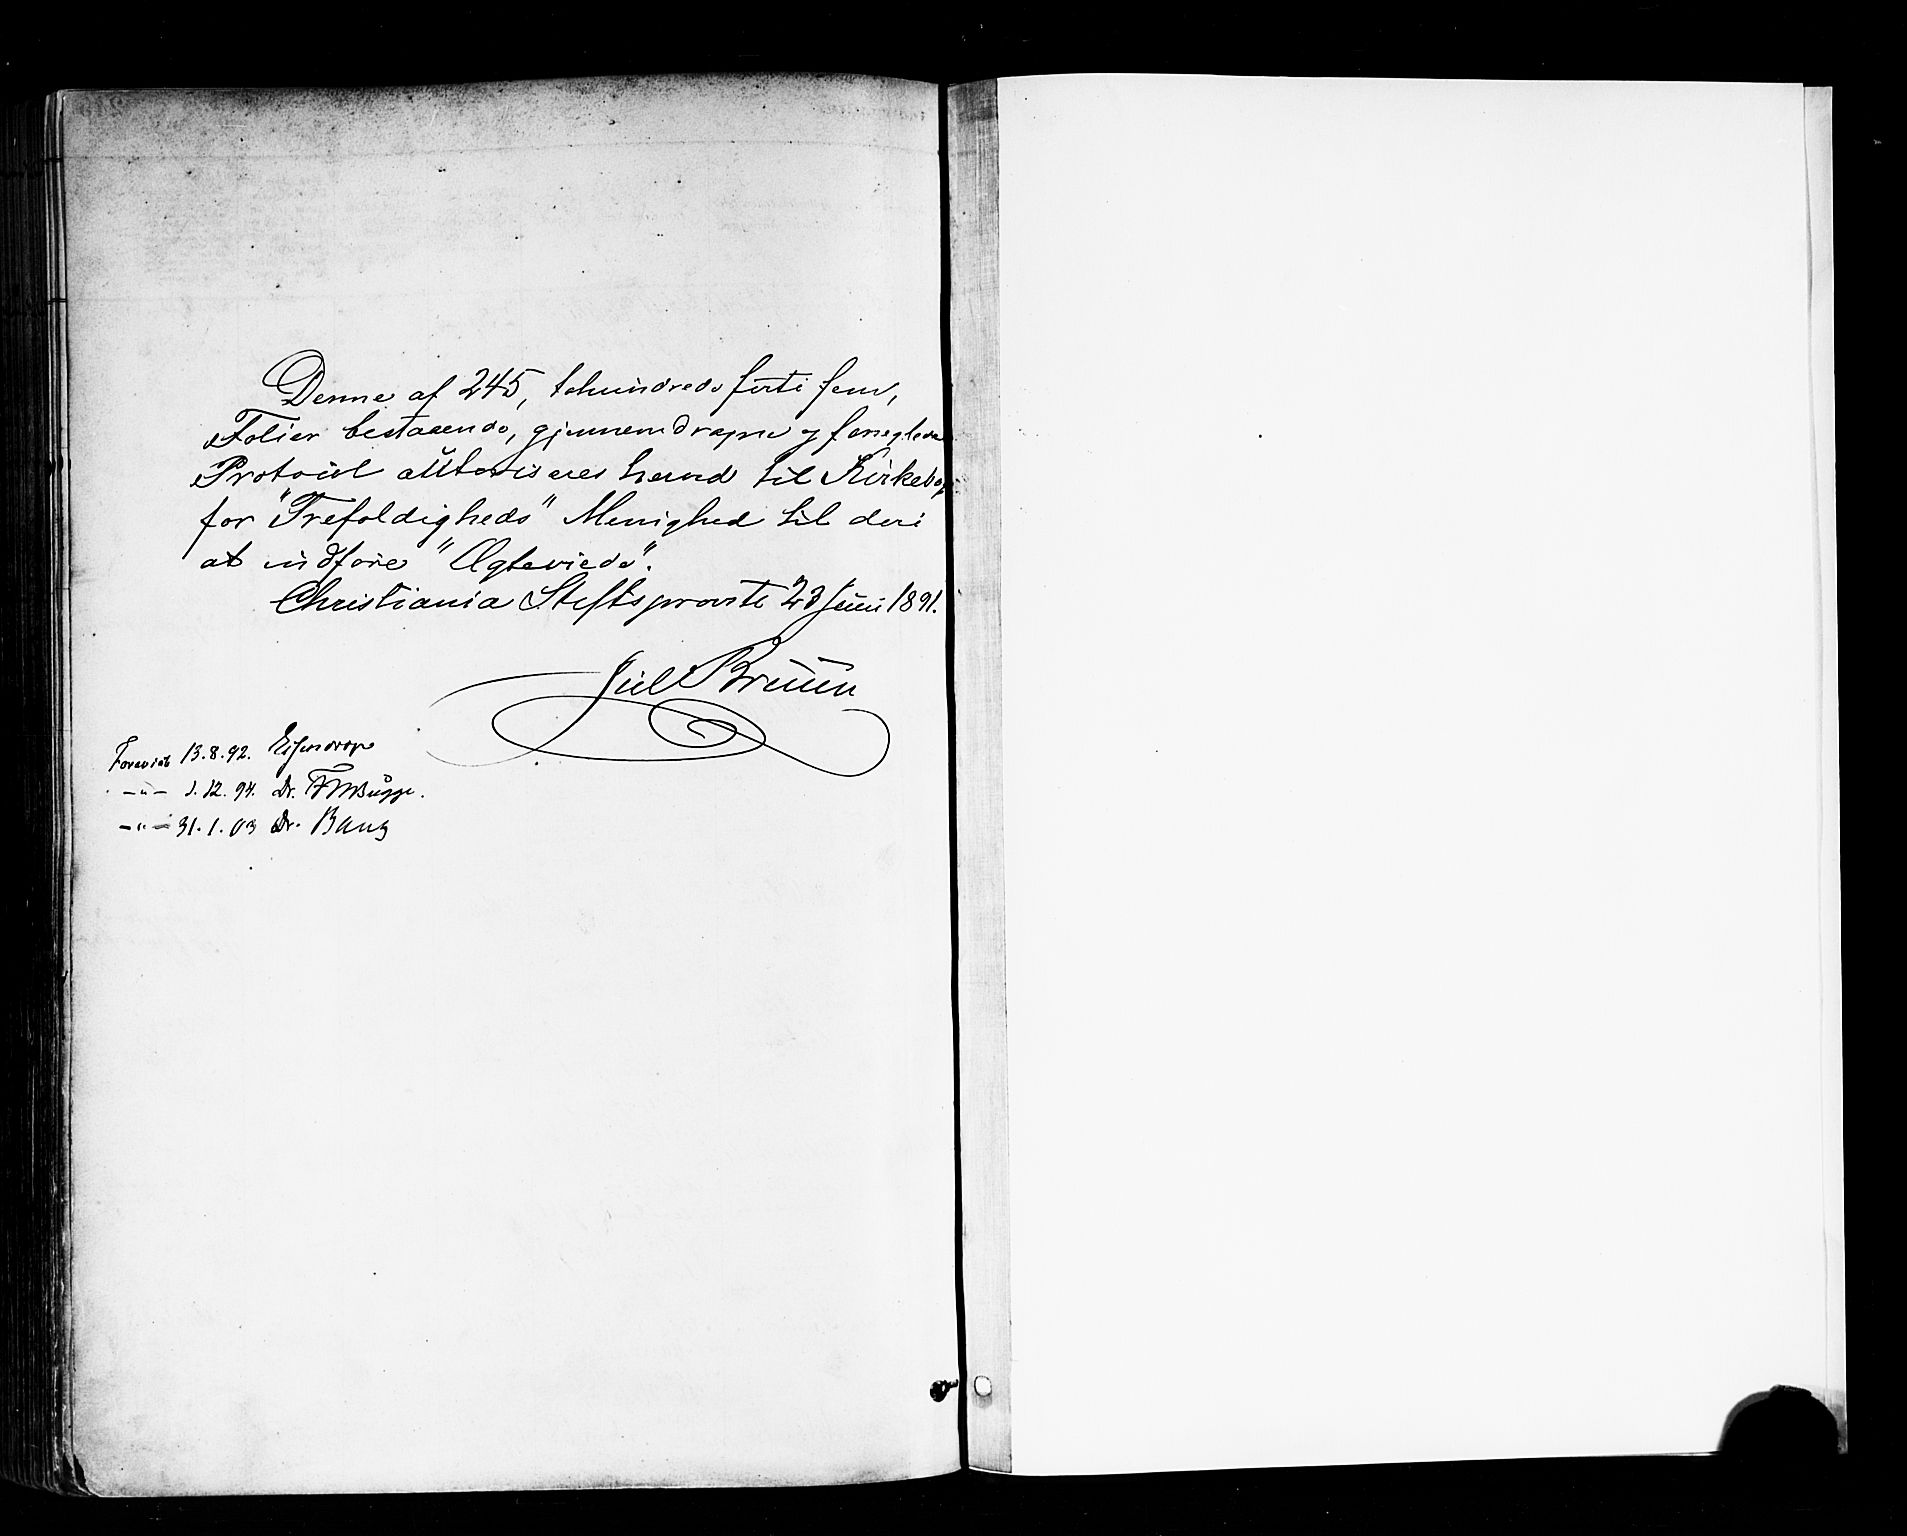 Denne af 245, tohundrede førti fem,
Folier bestaaende, gjennemdragne og forseglede
Protocol autoriseres herved til Kirkebog
for "Trefoldigheds" Menighed til deri
at indføre "Ægteviede".
Christiania Stiftsprovsti 23 Juni 1891.
Juell Bruun
Forevist 13.8.92. Essendrop
-"- 1.12.94. Dr. FWBugge.
-"- 31.1.03 Dr. Bang